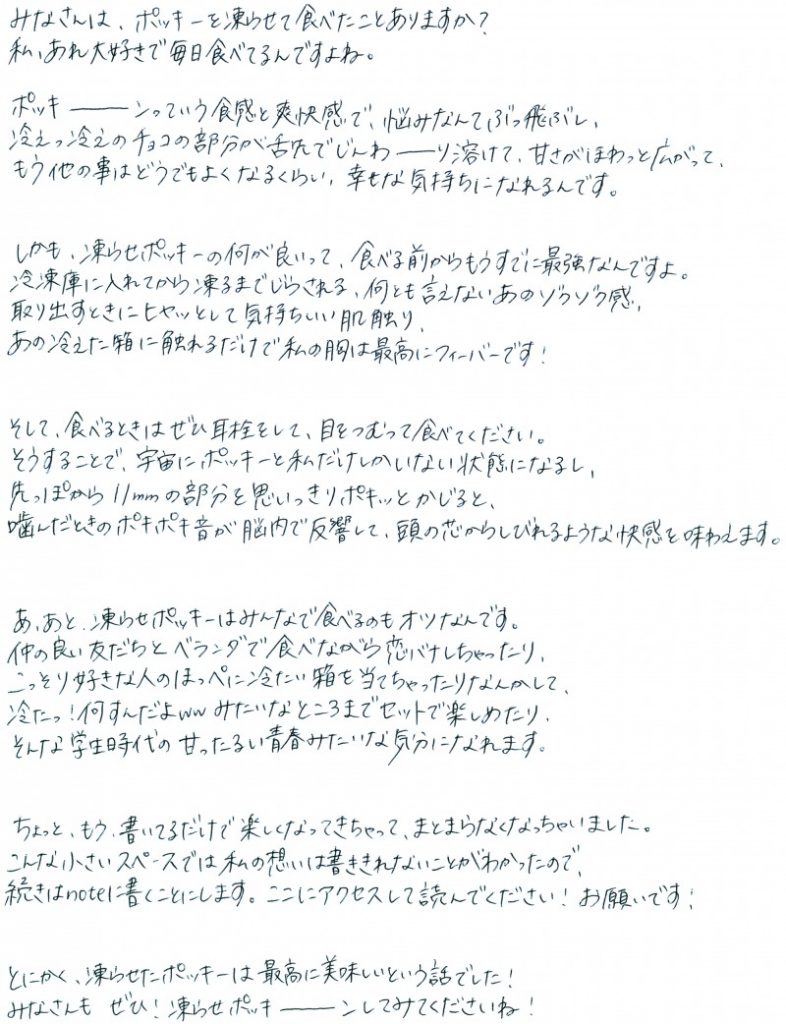 みなさんは、ポッキーを凍らせて食べたことありますか？
私、あれ大好きで毎日食べてるんですよね。
ポッキ―――ンっていう食感と爽快感で、悩みなんてぶっ飛ぶし、
冷えっ冷えのチョコの部分が舌先でじんわ――り溶けて、甘さがほわっと広がって、
もう他の事はどうでもよくなるくらい、幸せな気持ちになれるんです。
しかも、凍らせポッキーの何が良いって、食べる前からもうすでに最強なんですよ。
冷凍庫に入れてから凍るまでじらされる、何とも言えないあのゾクゾク感、
取り出すときにヒヤッとして気持ちいい肌触り、
あの冷えた箱に触れるだけで私の胸は最高にフィーバーです！
そして、食べるときはぜひ耳栓をして、目をつむって食べてください。
そうすることで、宇宙にポッキーと私だけしかいない状態になるし、
先っぽから11mmの部分を思いっきりポキッとかじると、
噛んだときのポキポキ音が脳内で反響して、頭の芯からしびれるような快感を味わえます。
あ、あと、凍らせポッキーはみんなで食べるのもオツなんです。
仲の良い友だちとベランダで食べながら恋バナしちゃったり、
こっそり好きな人のほっぺに冷たい箱を当てちゃったりなんかして、
冷たっ！何すんだよww みたいなところまでセットで楽しめたり、
そんな学生時代の甘ったるい青春みたいな気分になれます。
ちょっと、もう、書いてるだけで楽しくなってきちゃって、まとまらなくなっちゃいました。
こんな小さいスペースでは私の想いは書ききれないことがわかったので、
続きはnoteに書くことにします。ここにアクセスして読んでください！お願いです！
とにかく、凍らせたポッキーは最高に美味しいという話でした！
みなさんも ぜひ！凍らせポッキ―――ンしてみてくださいね！